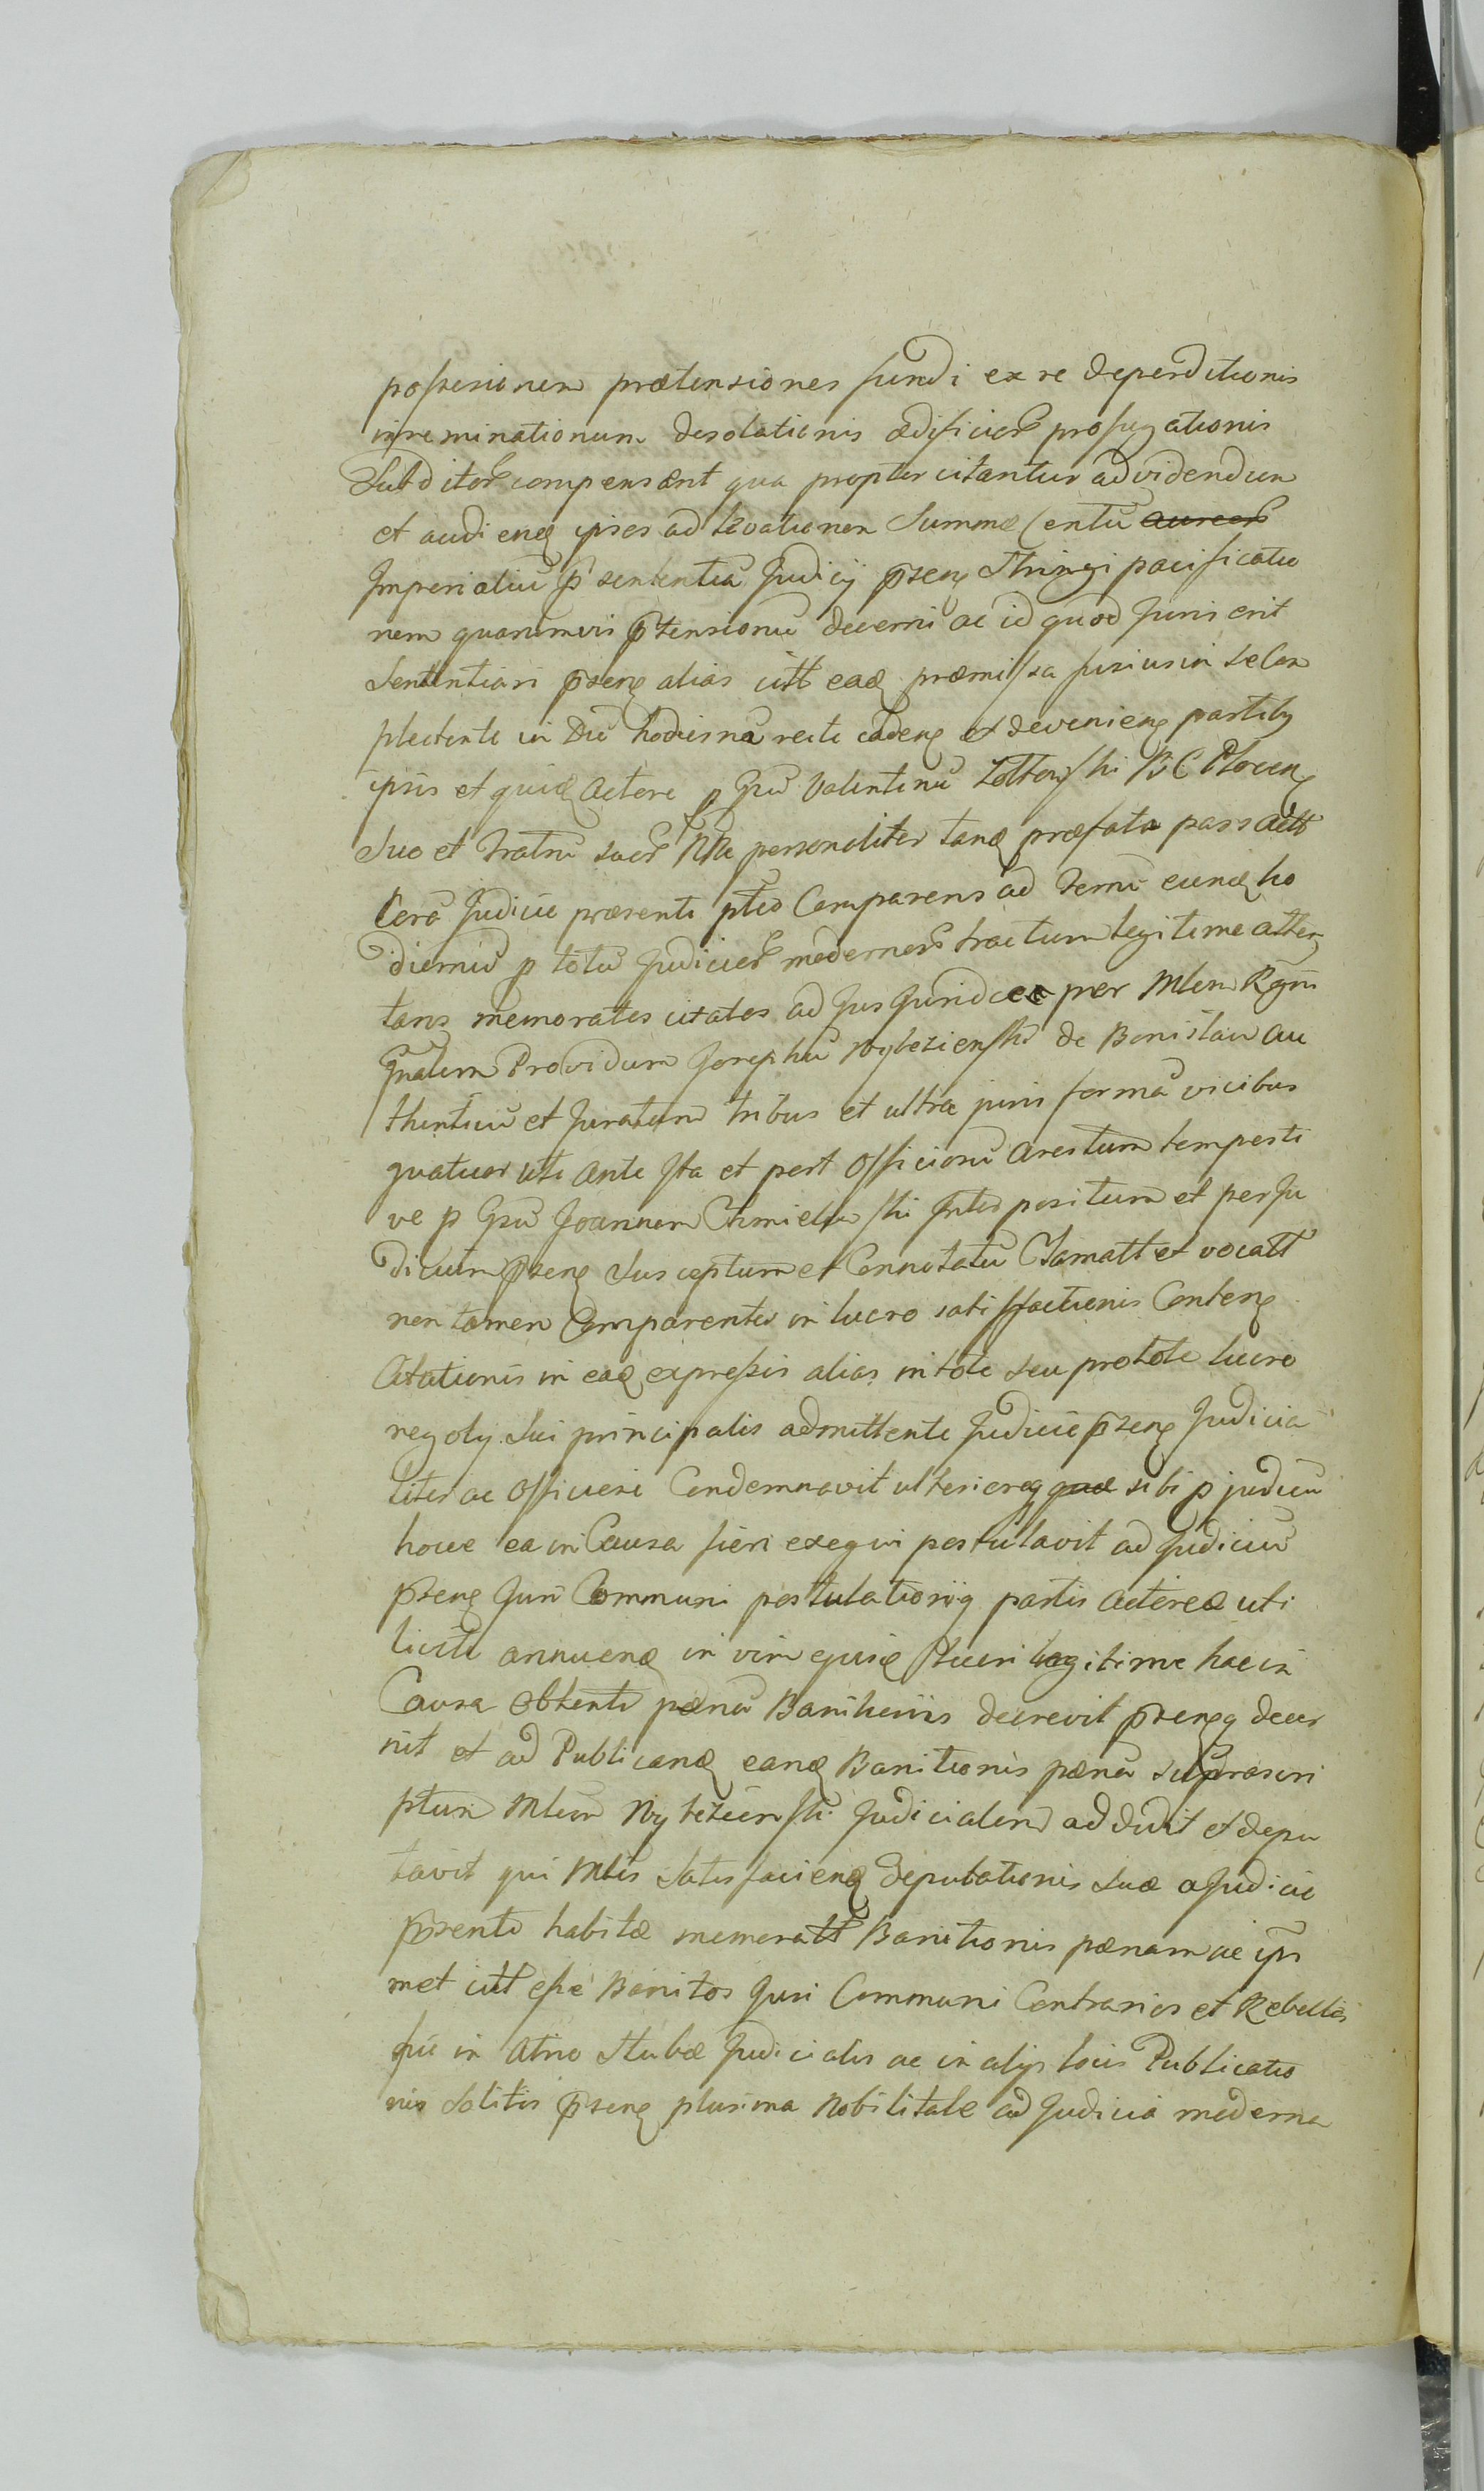 possesionem prætensiones fundi ex re deperditionis
inseminationum desolationis ædificior profugationis
Subditor compensent qua propter citantur ad videndum
et audiend ipsos ad levationem Summæ Centū aureor
Imperialiū p sententiā Judicij pseng Stringi pacificatio
nem quarumvis ptensionū decerni ac id quod Juris erit
Sententiari pseng alias citt ead præmissa fusius in se Com
plectente in Die hodierna recte cadeng et devenieng partibg
ipsis et quid Actore p Gsū Valentinū BC Plocen
suo et fratrū suor Nne personaliter tanq præfata pars Actt
Corā Judicio præsenti pted Comparens ad Termī eund ho
diernū p totū Judicior modernor tractum legitime atten
tans memoratos citatos ad Jus Juridice per Mlem Rgni
Gnalem Providum Josephū Wybezienski de Bonislaw au
thenticū et Juratum tribus et ultra juris formā vicibus
quatuor uti ante sta et post Officiosū Arestum tempesti
ve p Gsū Joannem Chmielewski Inter positum et per Ju
dicium pseng Susceptum et Connotatū Clamatt et vocatt
non tamen Comparentes in lucro satisfactionis Conteng
Citationis in ead expressis alias in toto seu pro toto lucro
negotij Sui principalis admittente Judicio pseng Judicia
liter ac Officiose Condemnavit ulterioraq quæ sibi p judiciū
hocce ea in Causa fieri exequi postulavit ad Judiciū
pseng Juri Communi postulationiq partis Actoreæ uti
licite annuend in vim ejusd lucri legitime hac in
Causa Obtenti pænā Bannitionis decrevit psengq decer
nit et ad Publicand eand Banitionis pænā suprascri
ptum Mlem Wybezienski Judicialem addidit et depu
tavit qui Mlis Satisfaciend deputationis suæ a Judicio
psenti habitæ memoratt Banitionis pænam ac ipsos
met citt esse Banitos Juri Communi Contrarios et Rebelles
hic in Atrio Stubæ Judicialis ac in alijs locis Publicatio
nis Solitis pseng plurima Nobilitate ad Judicia moderna